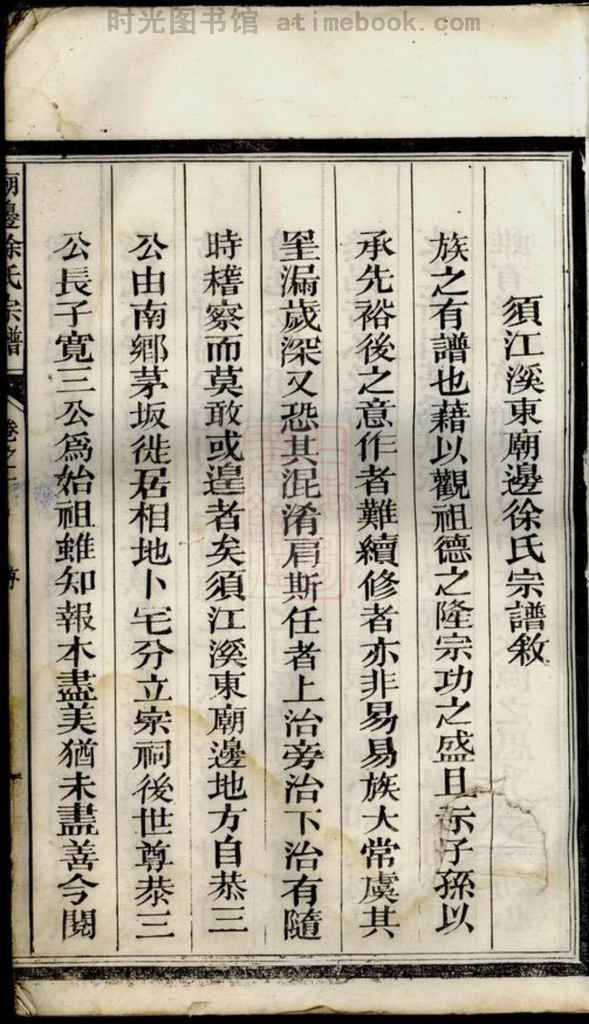 时光图书馆 atimebook.com
須江溪東廟邊徐氏宗譜敘
族之有譜也藉以觀祖德之隆宗功之盛且示子孫以
承先裕後之意作者難續修者亦非易易族大常虞其
罣漏歲深又恐其混淆肩斯任者上治旁治下治有隨
時稽察而莫敢或遑者矣須江溪東廟邊地方自恭三
公由南鄉茅坂徙居相地卜宅分立宗祠後世尊恭三
公長子寬三公為始祖雖知報本盡美猶未盡善今閱
廟邊徐氏宗譜
卷之
序